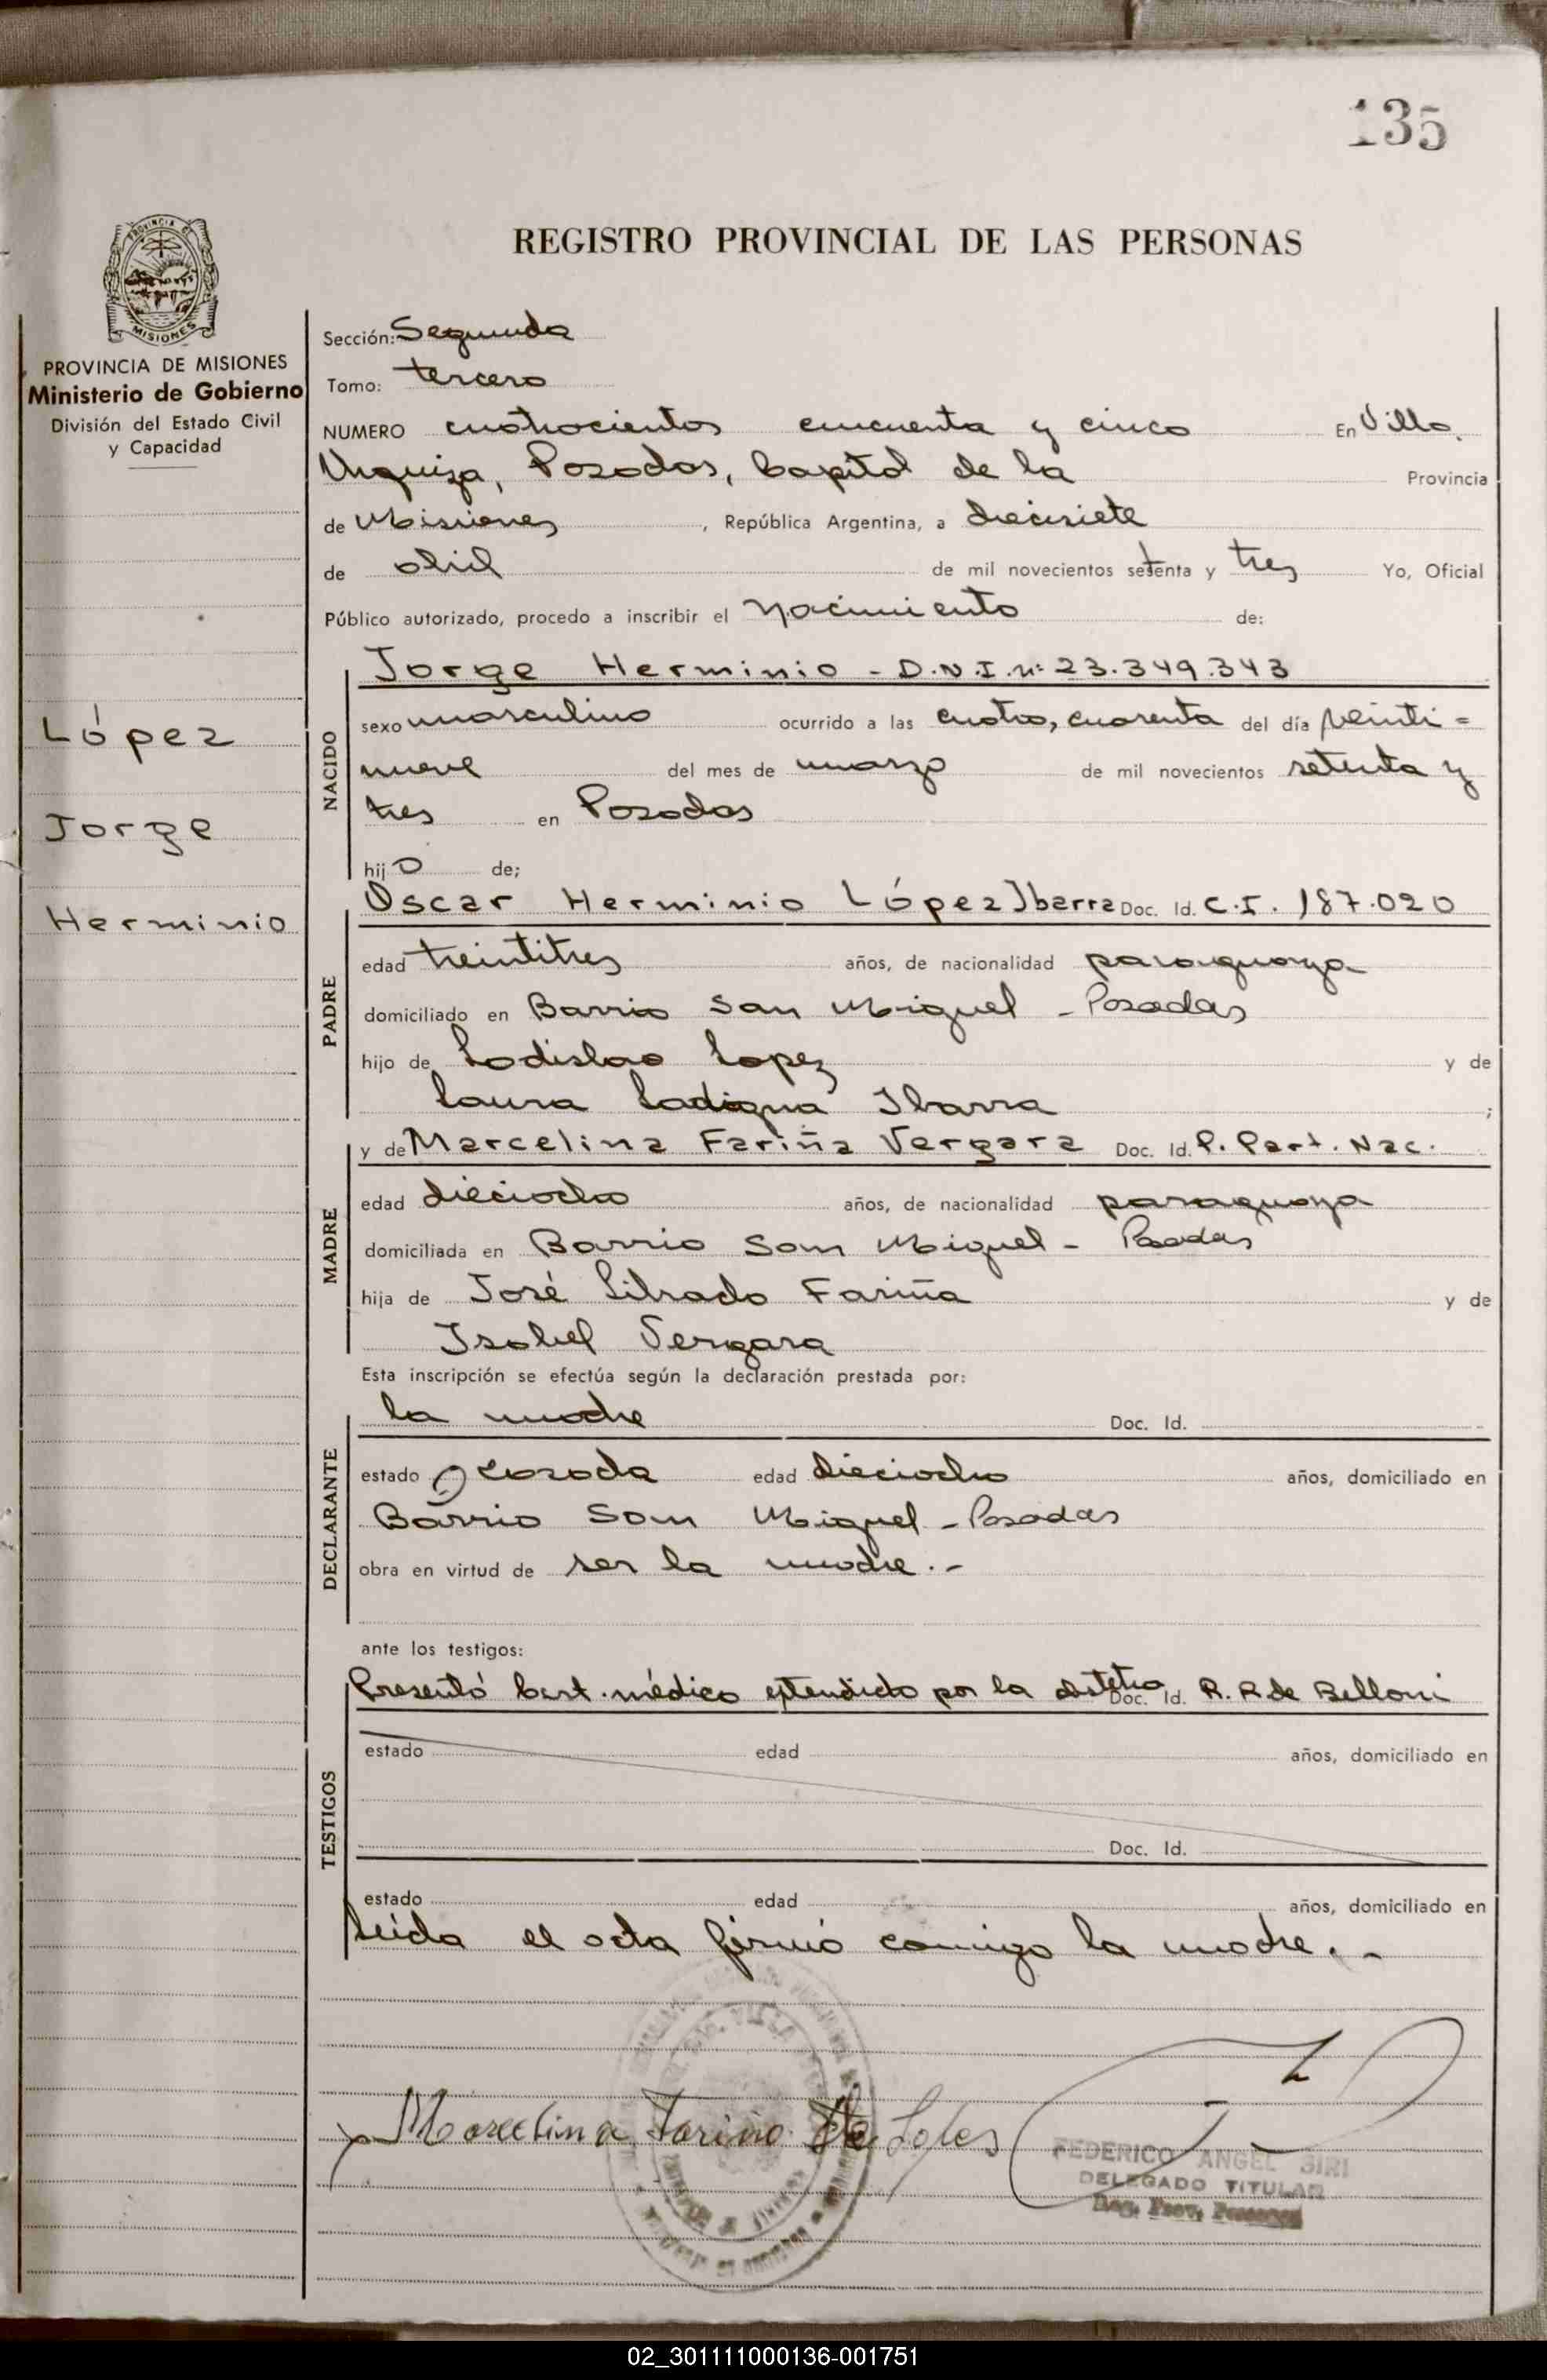 135
PROVINCIA DE
MISIONES
PROVINCIA DE MISIONES
Ministerio de Gobierno
División del Estado Civil
y Capacidad
López
Jorge
Herminio
REGISTRO PROVINCIAL DE LAS PERSONAS
Sección: Segunda
Tomo: tercero
NUMERO cuatrocientos cincuenta y cinco En Villa
Urquiza, Posadas, Capital de la Provincia
de Misiones, República Argentina, a diecisiete
de abril de mil novecientos setenta y tres Yo, Oficial
Público autorizado, procedo a inscribir el nacimiento de:
NACIDO
Jorge Herminio - D.N.I. nº 23.349.343
sexo masculino ocurrido a las cuatro, cuarenta del día veinti=
nueve del mes de marzo de mil novecientos setenta y
tres en Posadas
hijo de;
PADRE
Oscar Herminio López Ibarra Doc. Id. C.I. 187.020
edad treintitres años, de nacionalidad paraguaya
domiciliado en Barrio San Miguel - Posadas
hijo de Ladislao Lopez y de
Laura Ibarra;
MADRE
y de Marcelina Fariña Vergara Doc. Id. P. Part. Nac.
edad dieciocho años, de nacionalidad paraguaya
domiciliada en Barrio San Miguel - Posadas
hija de José Librado Fariña y de
Isabel Vergara
Esta inscripción se efectúa según la declaración prestada por:
DECLARANTE
la madre Doc. Id.
estado casada edad dieciocho años, domiciliado en
Barrio San Miguel - Posadas
obra en virtud de ser la madre.-
ante los testigos:
TESTIGOS
Presentó Cert. médico extendido por la obstetra Doc. Id. R. R. de Belloni
estado edad años, domiciliado en
Doc. Id.
estado edad años, domiciliado en
Leída el acta firmó conmigo la madre.-
Marcelina Fariña de Lopes
FEDERICO ANGEL SIRI
DELEGADO TITULAR
Reg. Prov. Personas
02_301111000136-001751